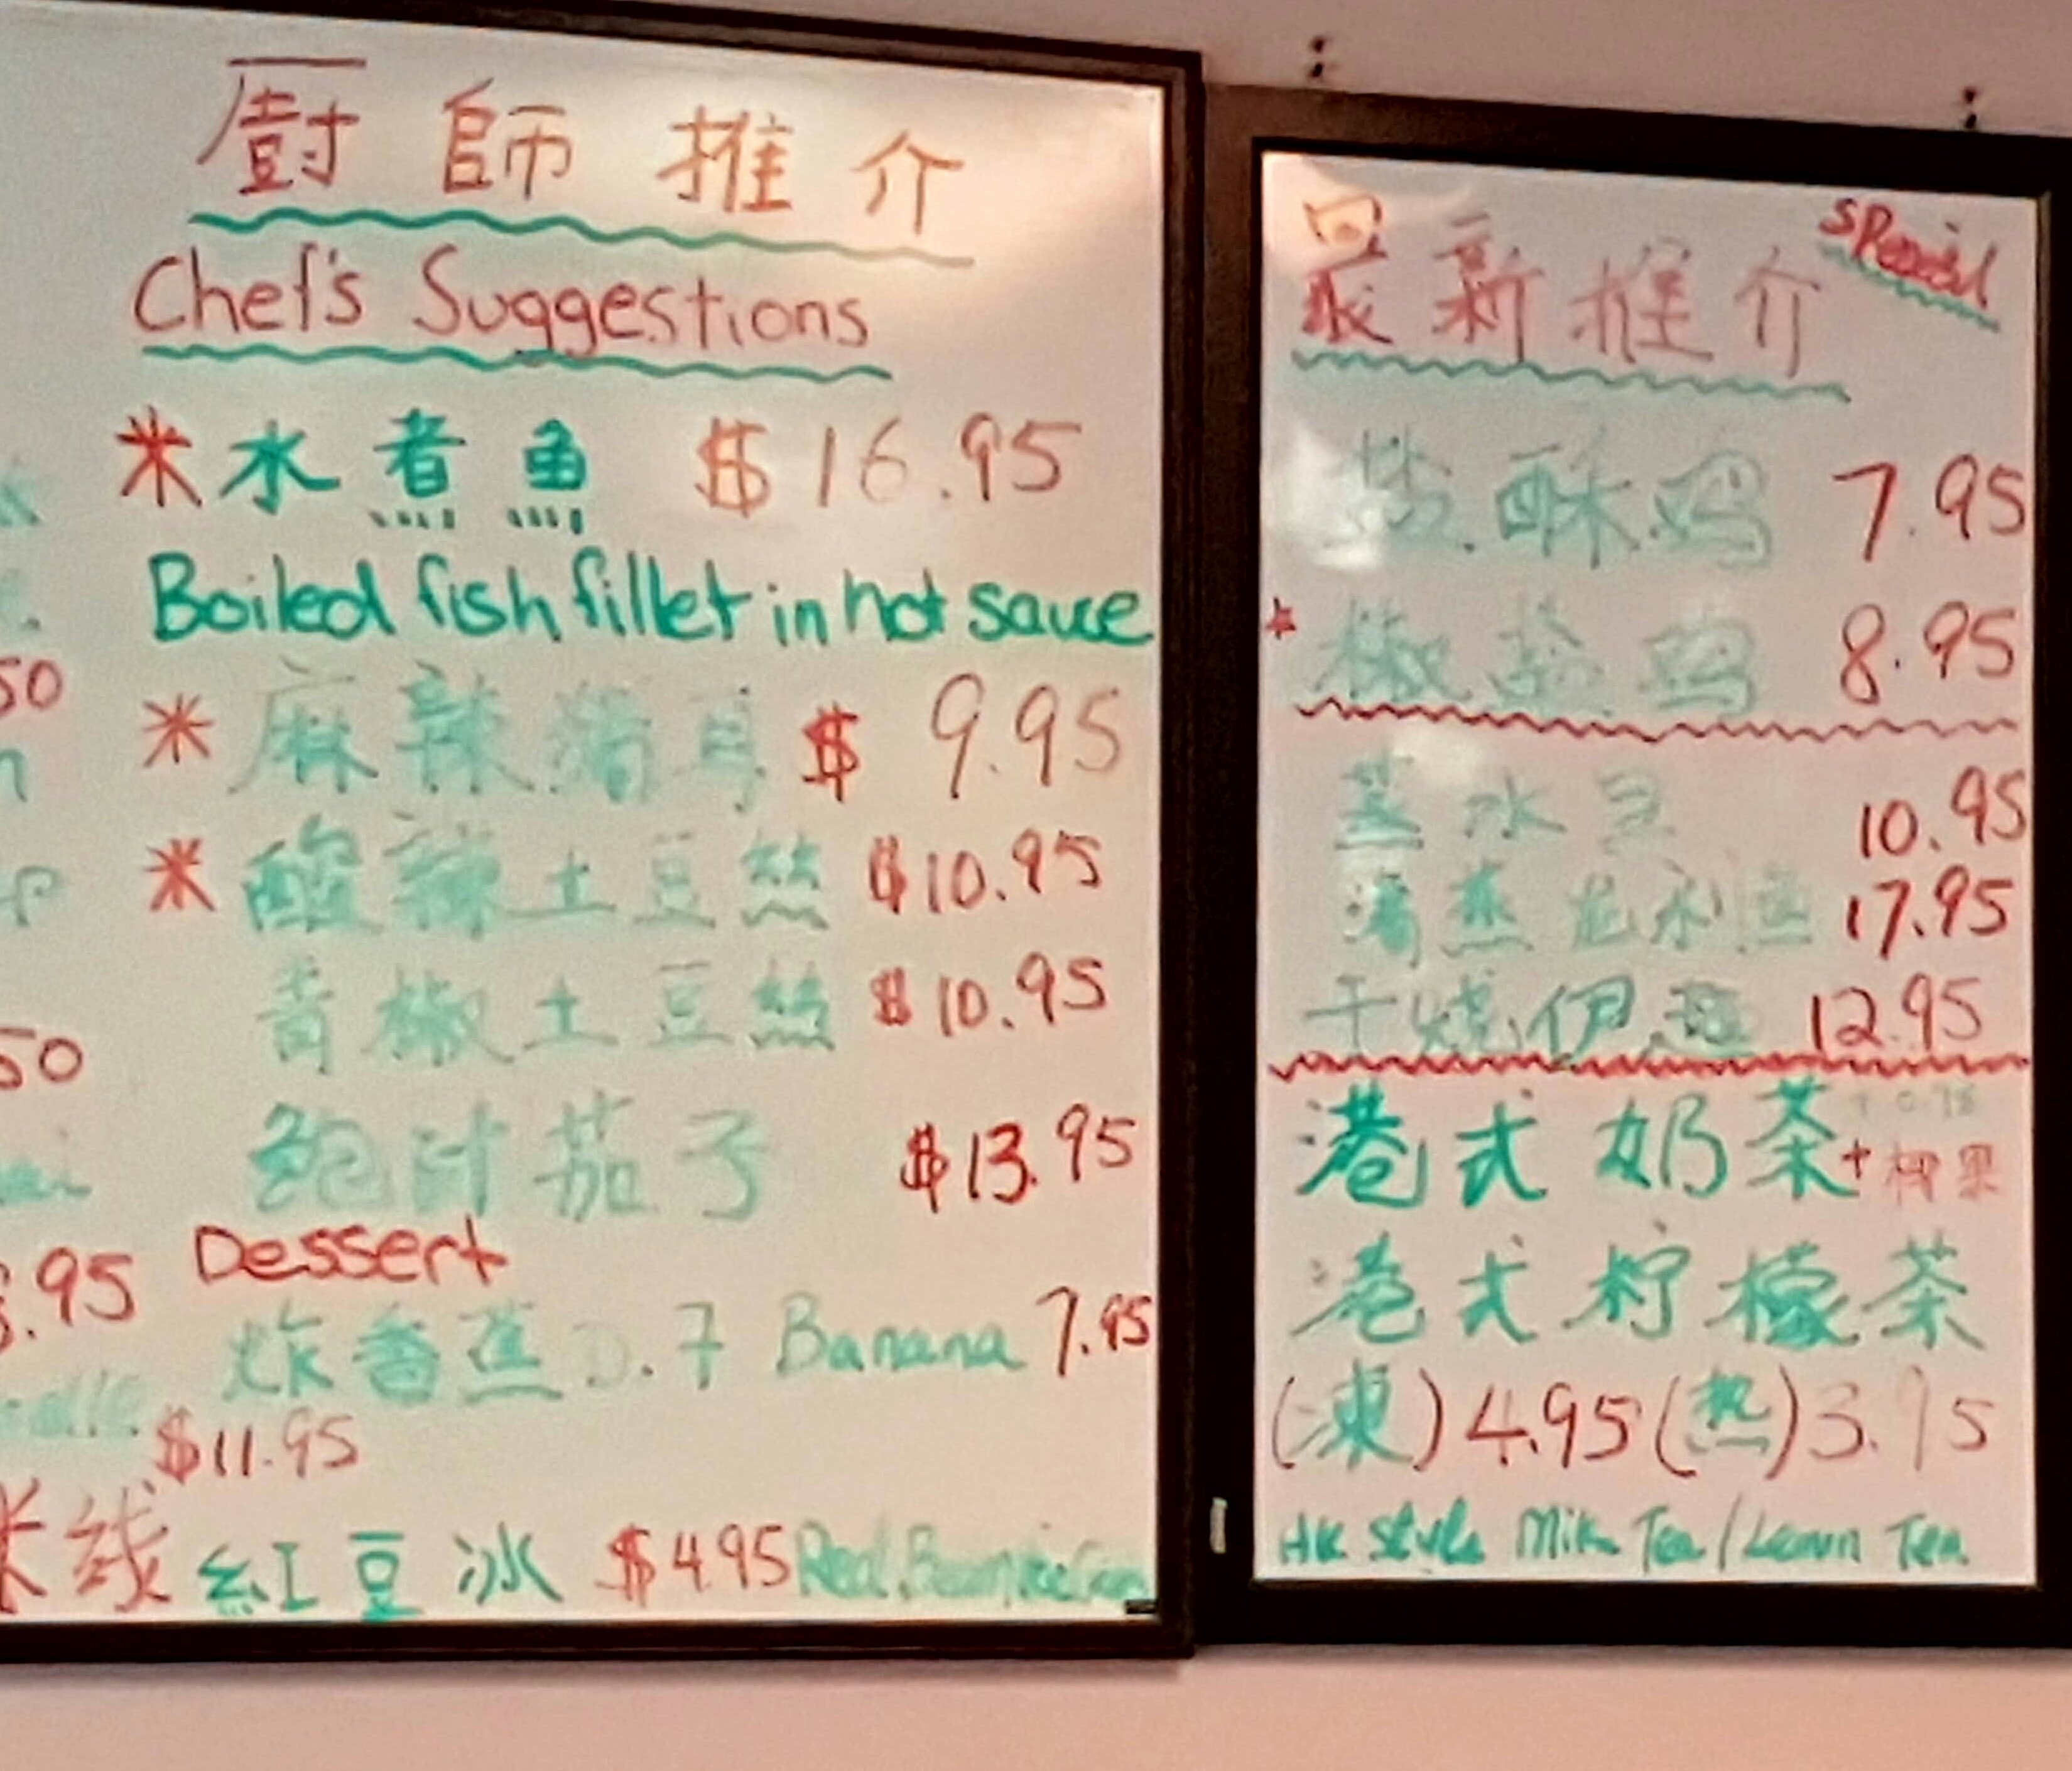 廚師推介
Chef's Suggestions
水煮魚 $16.95
Boiled fish fillet in hot sauce
麻辣豬耳 $9.95
酸辣土豆絲 $10.95
青椒土豆絲 $10.95
鮑汁茄子 $13.95
Dessert
炸香蕉 D.F Banana 7.95
$11.95
米线
紅豆冰 $4.95 Red Bean Ice
50
50
.95
最新推介
Special
盐酥鸡 7.95
椒盐鸡 8.95
蒸水旦 10.95
清蒸龙利鱼 17.95
干烧伊面 12.95
港式奶茶 + 椰果
港式柠檬茶
(凍) 4.95 (热) 3.95
HK Style Milk Tea / Lemon Tea